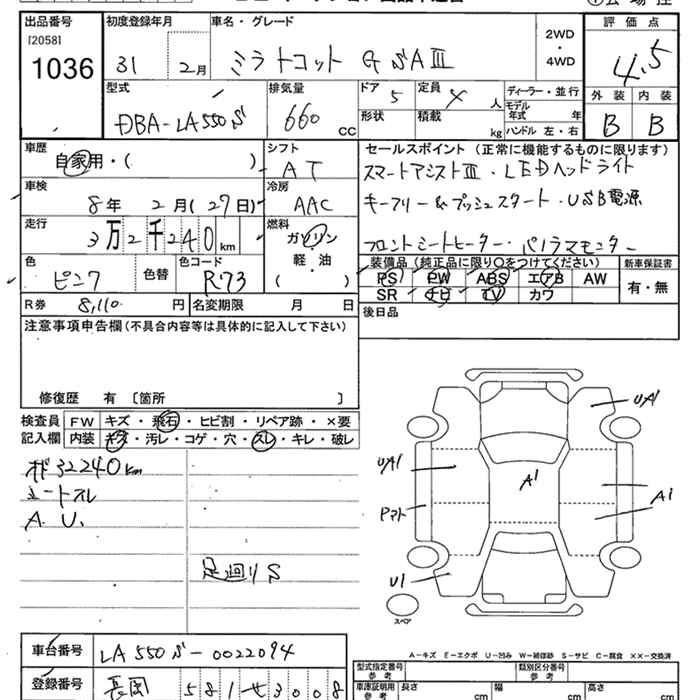 出品番号 初度登録年月 車名・グレード 2WD・4WD 評価点
[2058]
1036 31 2月 ミラトコット G SAⅢ 4.5
型式 排気量 ドア 5 定員 4人 ディーラー・並行 外装 内装
DBA-LA550S 660 CC 形状 積載 kg モデル年式 年 ハンドル 左・右 B B
車歴 シフト セールスポイント (正常に機能するものに限ります)
自家用・( ) AT スマートアシストⅢ・LEDヘッドライト
車検 冷房
8年 2月(27日) AAC キーフリー&プッシュスタート・USB電源
走行 燃料
3万2千240km ガソリン フロントシートヒーター・パノラマモニター
色 色替 色コード 軽・油 装備品 (純正品に限り○をつけてください) 新車保証書
ピンク R73 ( ) PS PW ABS エアB AW 有・無
R券 8,110円 名変期限 月 日 SR ナビ TV カワ
注意事項申告欄(不具合内容等は具体的に記入して下さい) 後日品
修復歴 有 〔箇所 〕
検査員 FW キズ・飛石・ヒビ割・リペア跡・×要
記入欄 内装 キズ・汚レ・コゲ・穴・スレ・キレ・破レ
32240km
シートスレ
A. U.
足廻りS
UA1
UA1
A1
A1
Pマト
U1
スペア
A-キズ E-エクボ U-凹み W-補修跡 S-サビ C-腐食 ××-交換済
車台番号 LA550S-0022094 型式指定番号 参考 類別区分番号 参考
登録番号 長岡 581 せ 3008 車庫証明用 参考 長さ cm 幅 cm 高さ cm